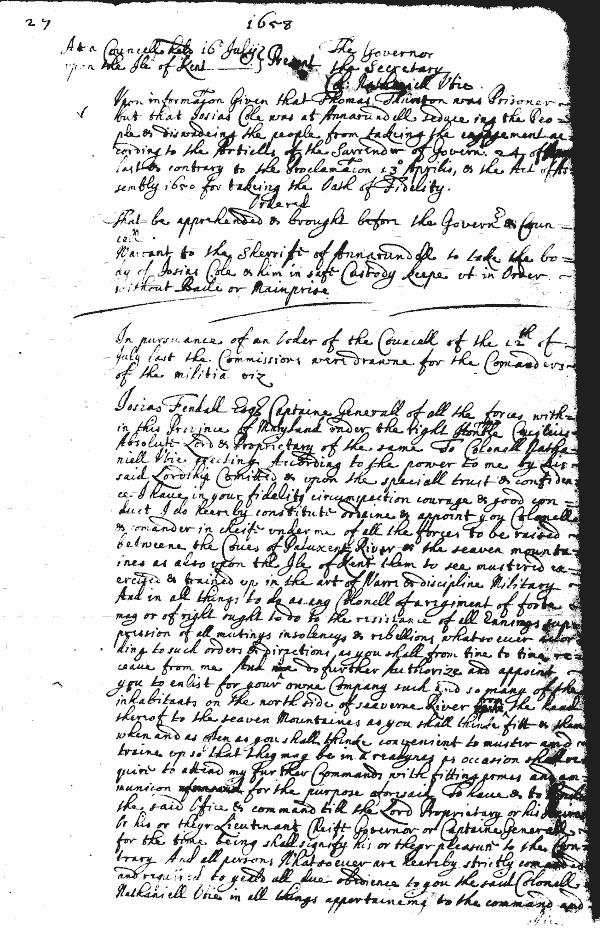 27
1658
At a Councell held 16 July
upon the Ile of Kent
Present
The Governor
the Secretary
Col: Nathaniell Utie
Upon information Given that Thomas Thurston was Prisoner
but that Josias Cole was at Annarundell seduceing the Peo
ple & diswadeing the people from takeing the engagement ac
cording to the Articles of the Surrender of Govern. 24 of
last & contrary to the Proclamation 13º Aprilis, & the Act of As
sembly 1650 for takeing the Oath of Fidelity.
Ordered
that he apprehended & brought before the Governr & Coun
cell
Warrant to the Sherriffe of Annarundell to take the bo
dy of Josias Cole & him in safe Custody keepe &t in Order
without Baile or Mainprise
In pursuance of an Order of the Councell of the 12th of
July last the Commissions were drawne for the Comanders
of the militia viz
Josias Fendall Esqr Captaine Generall of all the forces with
in this Province of Maryland under the right Honble Cecilius
Absolute Lord & Proprietary of the same To Colonell Natha
niell Utie greeting. According to the power to me by his
said Lordship Comitted & upon the speciall trust & confiden
ce I have in your fidelity circumspection courage & good con
duct I do hereby constitute ordaine & appoint you Colonell
& comander in cheife under me of all the forces to be raised
betweene the Coves of Patuxent River & the seaven mounta
ines as also upon the Ile of Kent them to see mustered ex
ercised & trained up in the art of Warre & discipline Military
And in all things to do as any Colonell of a rigiment of foote
may or of right ought to do to the resistance of all Ennimys sup
pression of all mutinys insolencys & rebellions whatsoever accor
ding to such orders & directions, as you shall from time to time re
ceave from me And do further Authorize and appoint
you to enlist for your owne Company such and so many of the
inhabitants on the north side of seaverne River from the head
thereof to the seaven Mountaines as you shall thinke fitt & them
when and as often as you shall thinke convenient to muster and
traine up so that they may be in a readynes as occasion shall re
quire to attend my further Commands with fitting armes and am
municon for the purpose aforesaid. To have & to
the said Office & command till the Lord Proprietary or his
or his or theyr Lieutenant Cheife Governor or Captaine Generall
for the time being shall signify his or theyr pleasure to the Con
trary And all persons Whatsoever are hereby strictly comanded
and required to yeeld all due obedience to you the said Colonell
Nathaniell Utie in all things appertaineing to the command and